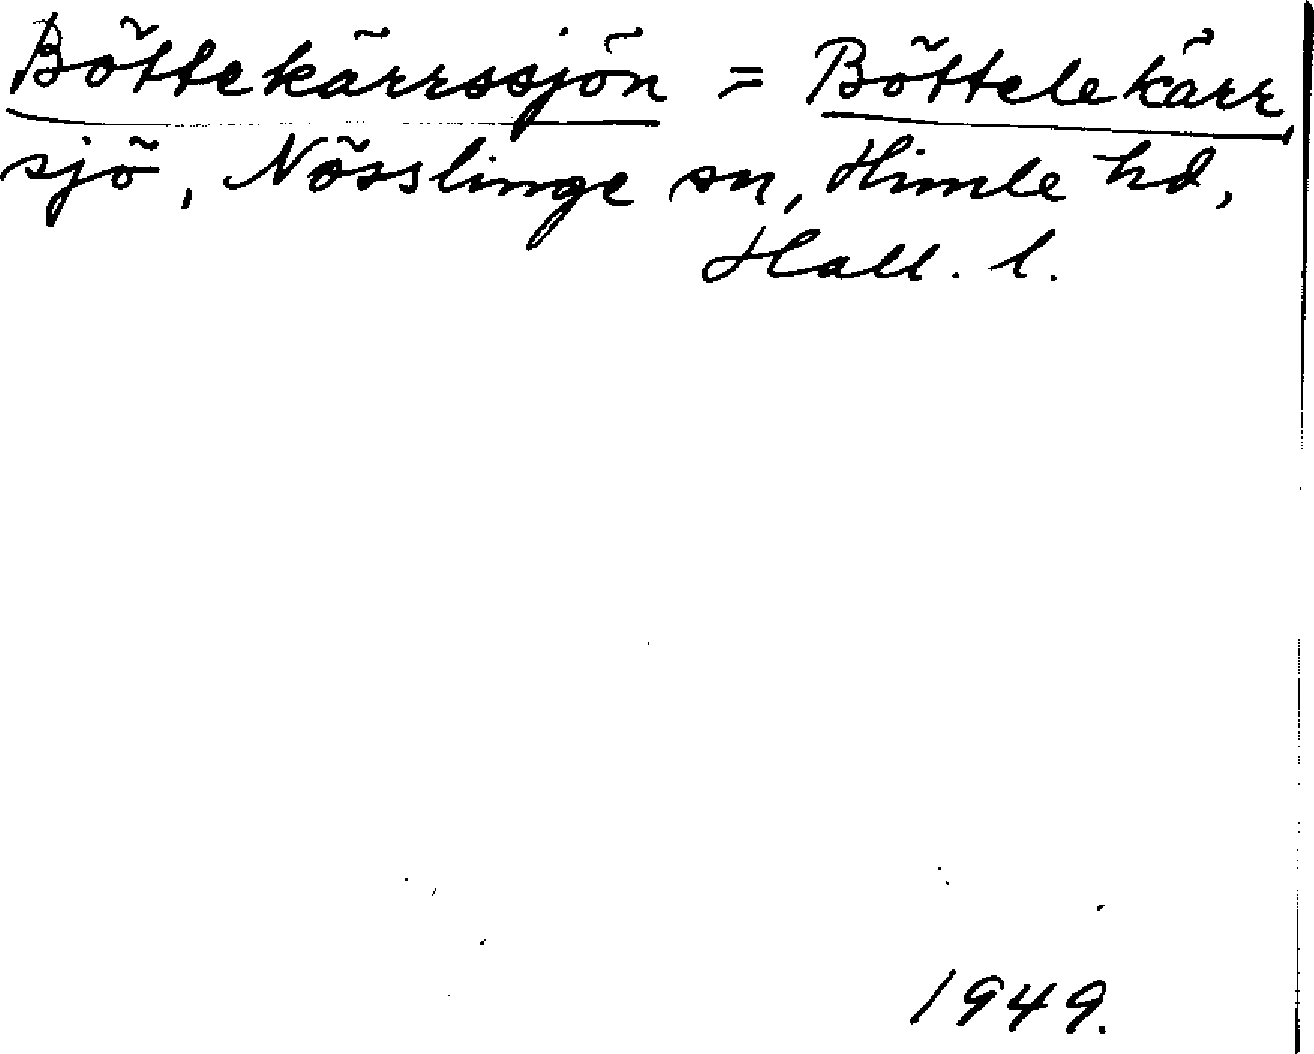 Böttekärrssjön = Böttelekärr,
sjö, Nösslinge sn, Himle hd,
Hall. l.
1949.